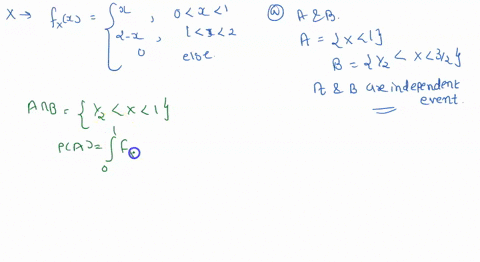 X → f_X(x) = { x , 0 < x < 1
2-x , 1 < x < 2
0 else
ⓐ A & B.
A = {X < 1}
B = {1/2 < X < 3/2}
A & B are independent
event.
A∩B = {1/2 < X < 1}
P(A) = ∫₀¹ f_x